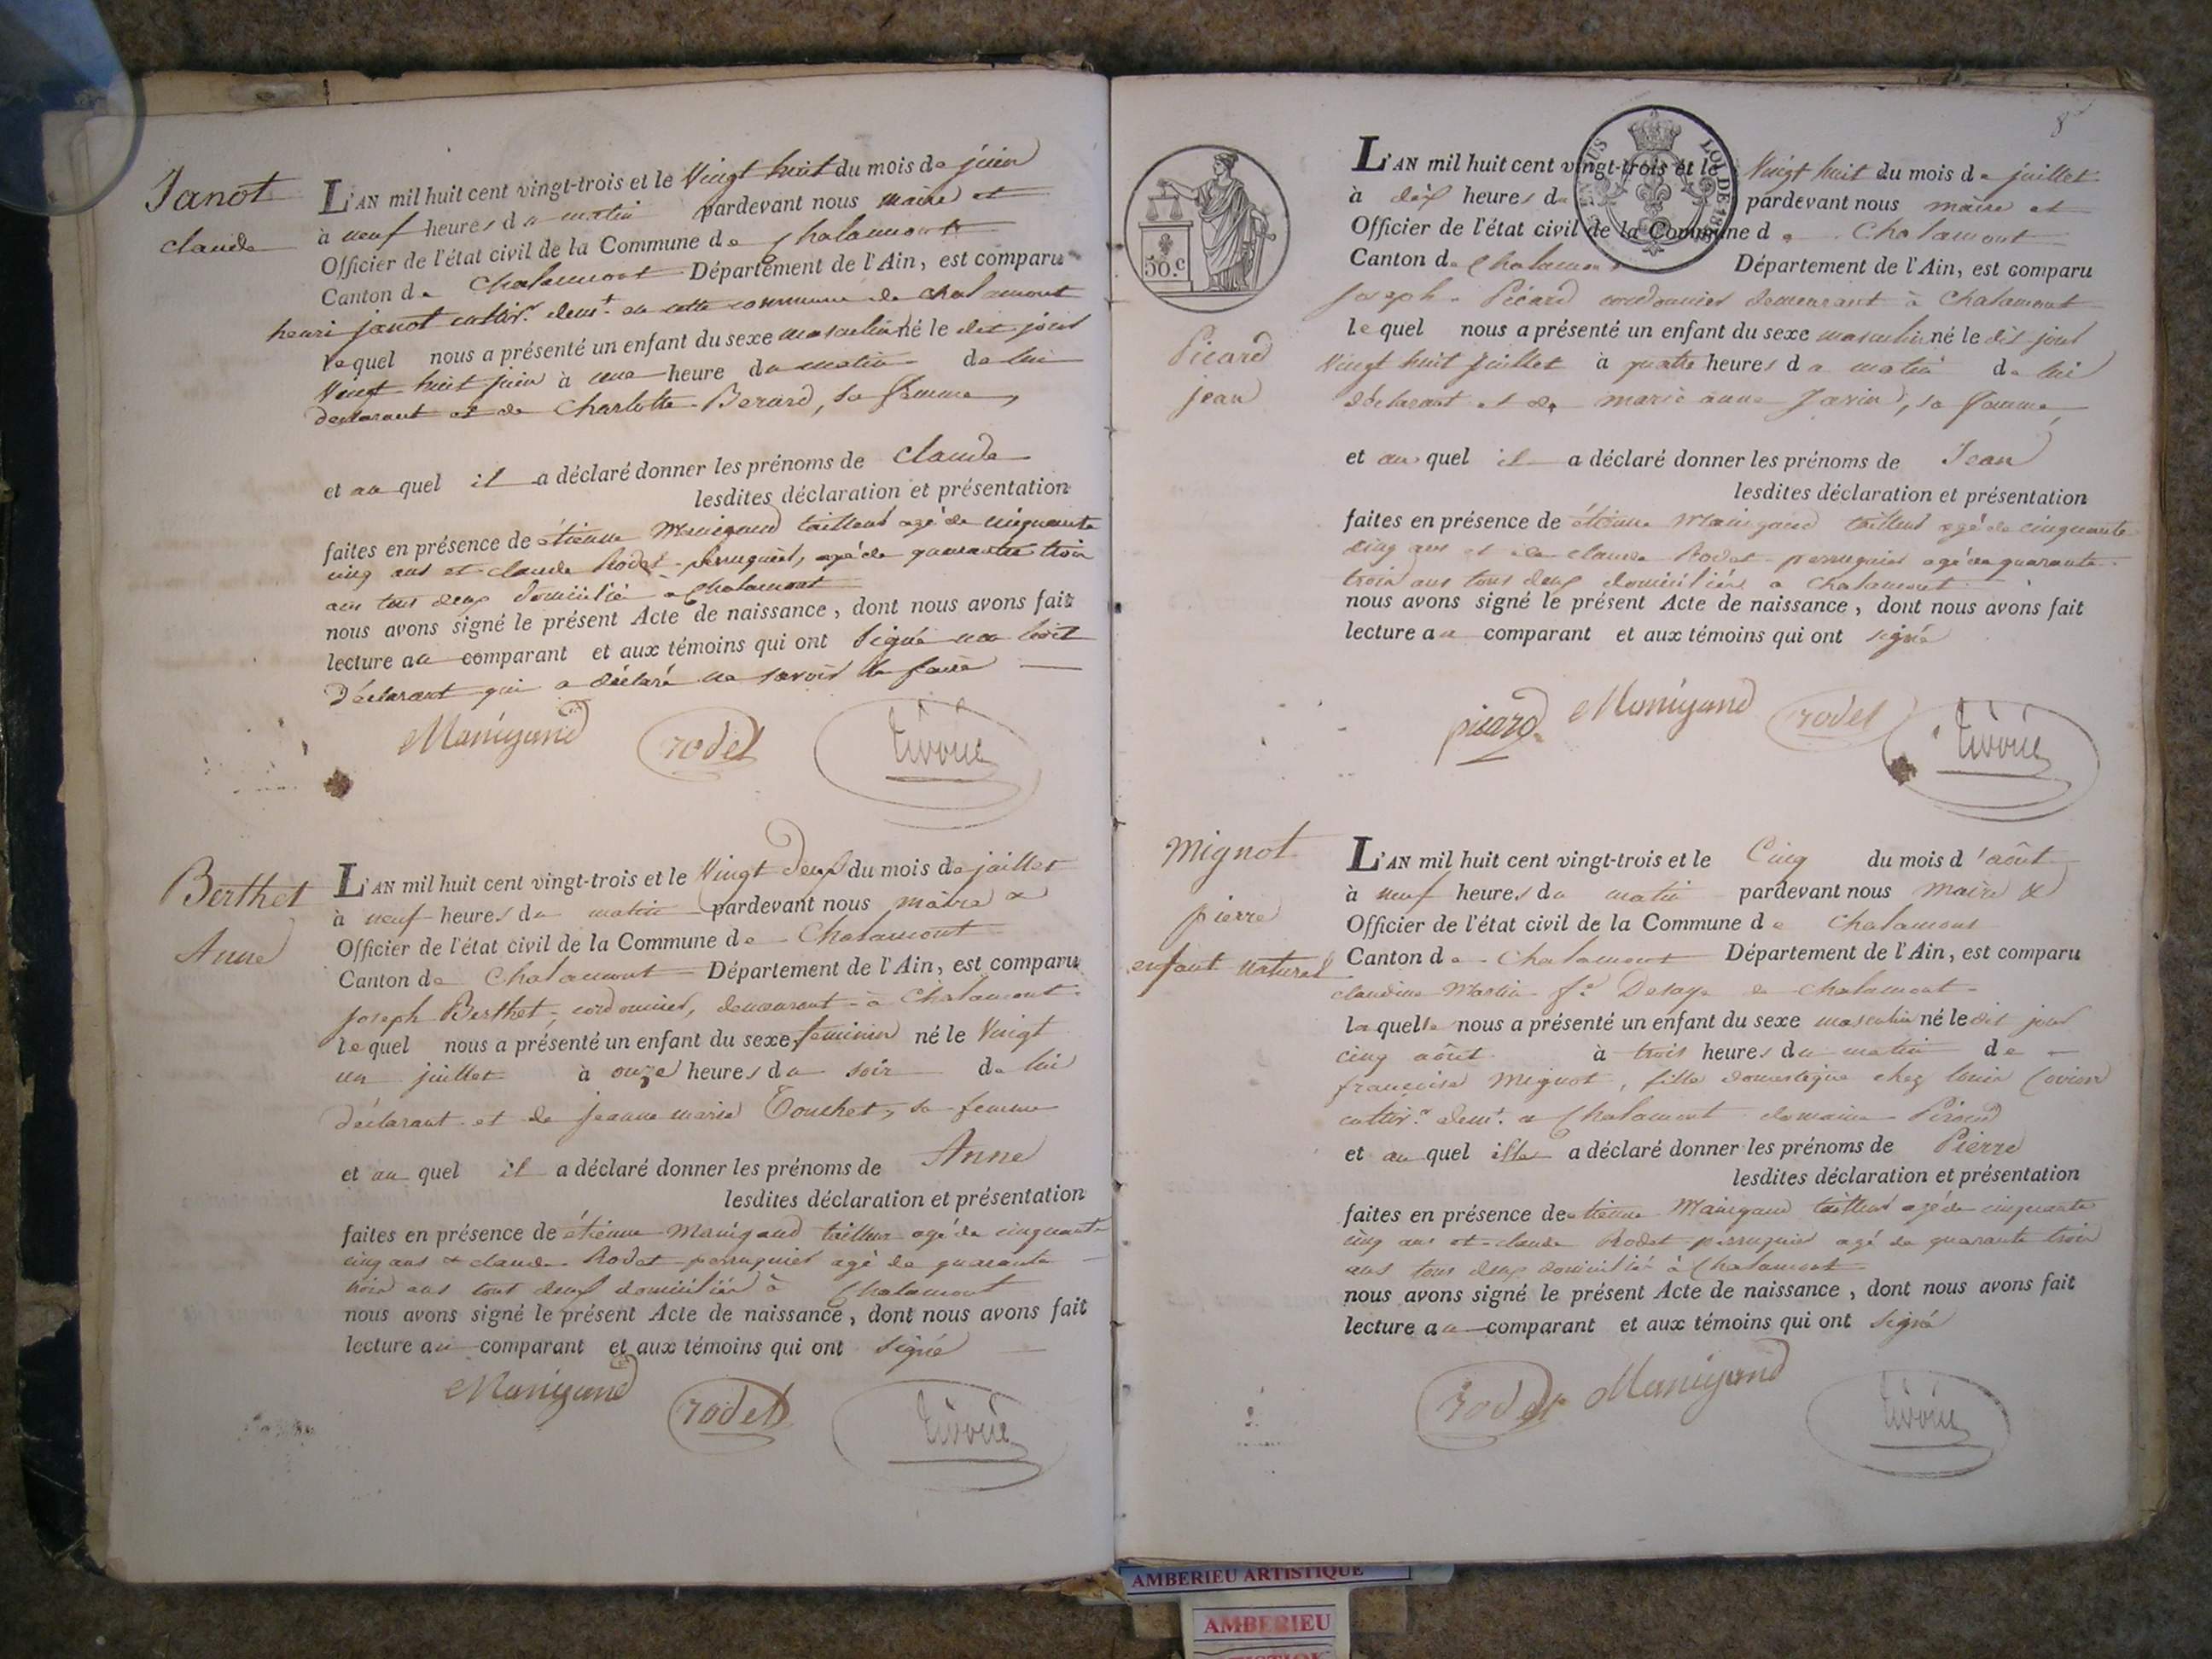 Janot
claude
L'AN mil huit cent vingt-trois et le Vingt huit du mois de juin
à neuf heures du matin pardevant nous maire et
Officier de l'état civil de la Commune de chalamont
Canton de Chalamont Département de l'Ain, est comparu
henri janot cultivr. demt. en cette commune de chalamont
lequel nous a présenté un enfant du sexe masculin né le dit jour
Vingt huit juin à une heure du matin de lui
declarant et de Charlotte Berard, sa femme,
et au quel il a déclaré donner les prénoms de claude
lesdites déclaration et présentation
faites en présence de étienne Manigand tailleur agé de cinquante
cinq ans et claude Rodet perruquier, agé de quarante trois
ans tous deux domicilié a Chalamont
nous avons signé le présent Acte de naissance, dont nous avons fait
lecture au comparant et aux témoins qui ont signé non ledit
Déclarant qui a déclaré ne savoir le faire
Manigand rodet
Berthet
Anne
L'AN mil huit cent vingt-trois et le Vingt deux du mois de juillet
à neuf heures du matin pardevant nous maire &
Officier de l'état civil de la Commune de Chalamont
Canton de Chalamont Département de l'Ain, est comparu
Joseph Berthet, cordonnier, demeurant à Chalamont
lequel nous a présenté un enfant du sexe feminin né le Vingt
un juillet à onze heures du soir de lui
déclarant et de jeanne marie Touchet, sa femme
et au quel il a déclaré donner les prénoms de Anne
lesdites déclaration et présentation
faites en présence de étienne Manigand tailleur agé de cinquante
cinq ans & claude Rodet perruquier agé de quarante
trois ans tout deux domiciliés à Chalamont
nous avons signé le présent Acte de naissance, dont nous avons fait
lecture au comparant et aux témoins qui ont signé
Manigand rodet
8
50.c
LOI DE 18
L'AN mil huit cent vingt-trois et le Vingt huit du mois de juillet
à dix heures du pardevant nous maire et
Officier de l'état civil de la Commune de Chalamont
Canton de Chalamont Département de l'Ain, est comparu
Joseph Picard cordonnier demeurant à Chalamont
lequel nous a présenté un enfant du sexe masculin né le dit jour
Picard
jean
Vingt huit juillet à quatre heures du matin de lui
déclarant et de marie anne Javin, sa femme,
et au quel il a déclaré donner les prénoms de Jean
lesdites déclaration et présentation
faites en présence de étienne Manigand tailleur agé de cinquante
cinq ans et de claude Rodet perruquier agé de quarante
trois ans tous deux domiciliés a Chalamont
nous avons signé le présent Acte de naissance, dont nous avons fait
lecture au comparant et aux témoins qui ont signé
picard Manigand rodet
Mignot
pierre
enfant naturel
L'AN mil huit cent vingt-trois et le Cinq du mois d'août
à neuf heures du matin pardevant nous Maire &
Officier de l'état civil de la Commune de Chalamont
Canton de Chalamont Département de l'Ain, est comparu
claudine Martin fe. Delaye de chalamont
laquelle nous a présenté un enfant du sexe masculin né le dit jour
cinq août à trois heures du matin de
françoise Mignot, fille domestique chez louis
cultivr. demt. a Chalamont domaine
et au quel elle a déclaré donner les prénoms de Pierre
lesdites déclaration et présentation
faites en présence de etienne Manigand tailleur agé de cinquante
cinq ans et claude Rodet perruquier agé de quarante trois
ans tous deux domiciliés à Chalamont
nous avons signé le présent Acte de naissance, dont nous avons fait
lecture au comparant et aux témoins qui ont signé
rodet Manigand
AMBERIEU ARTISTIQUE
AMBERIEU